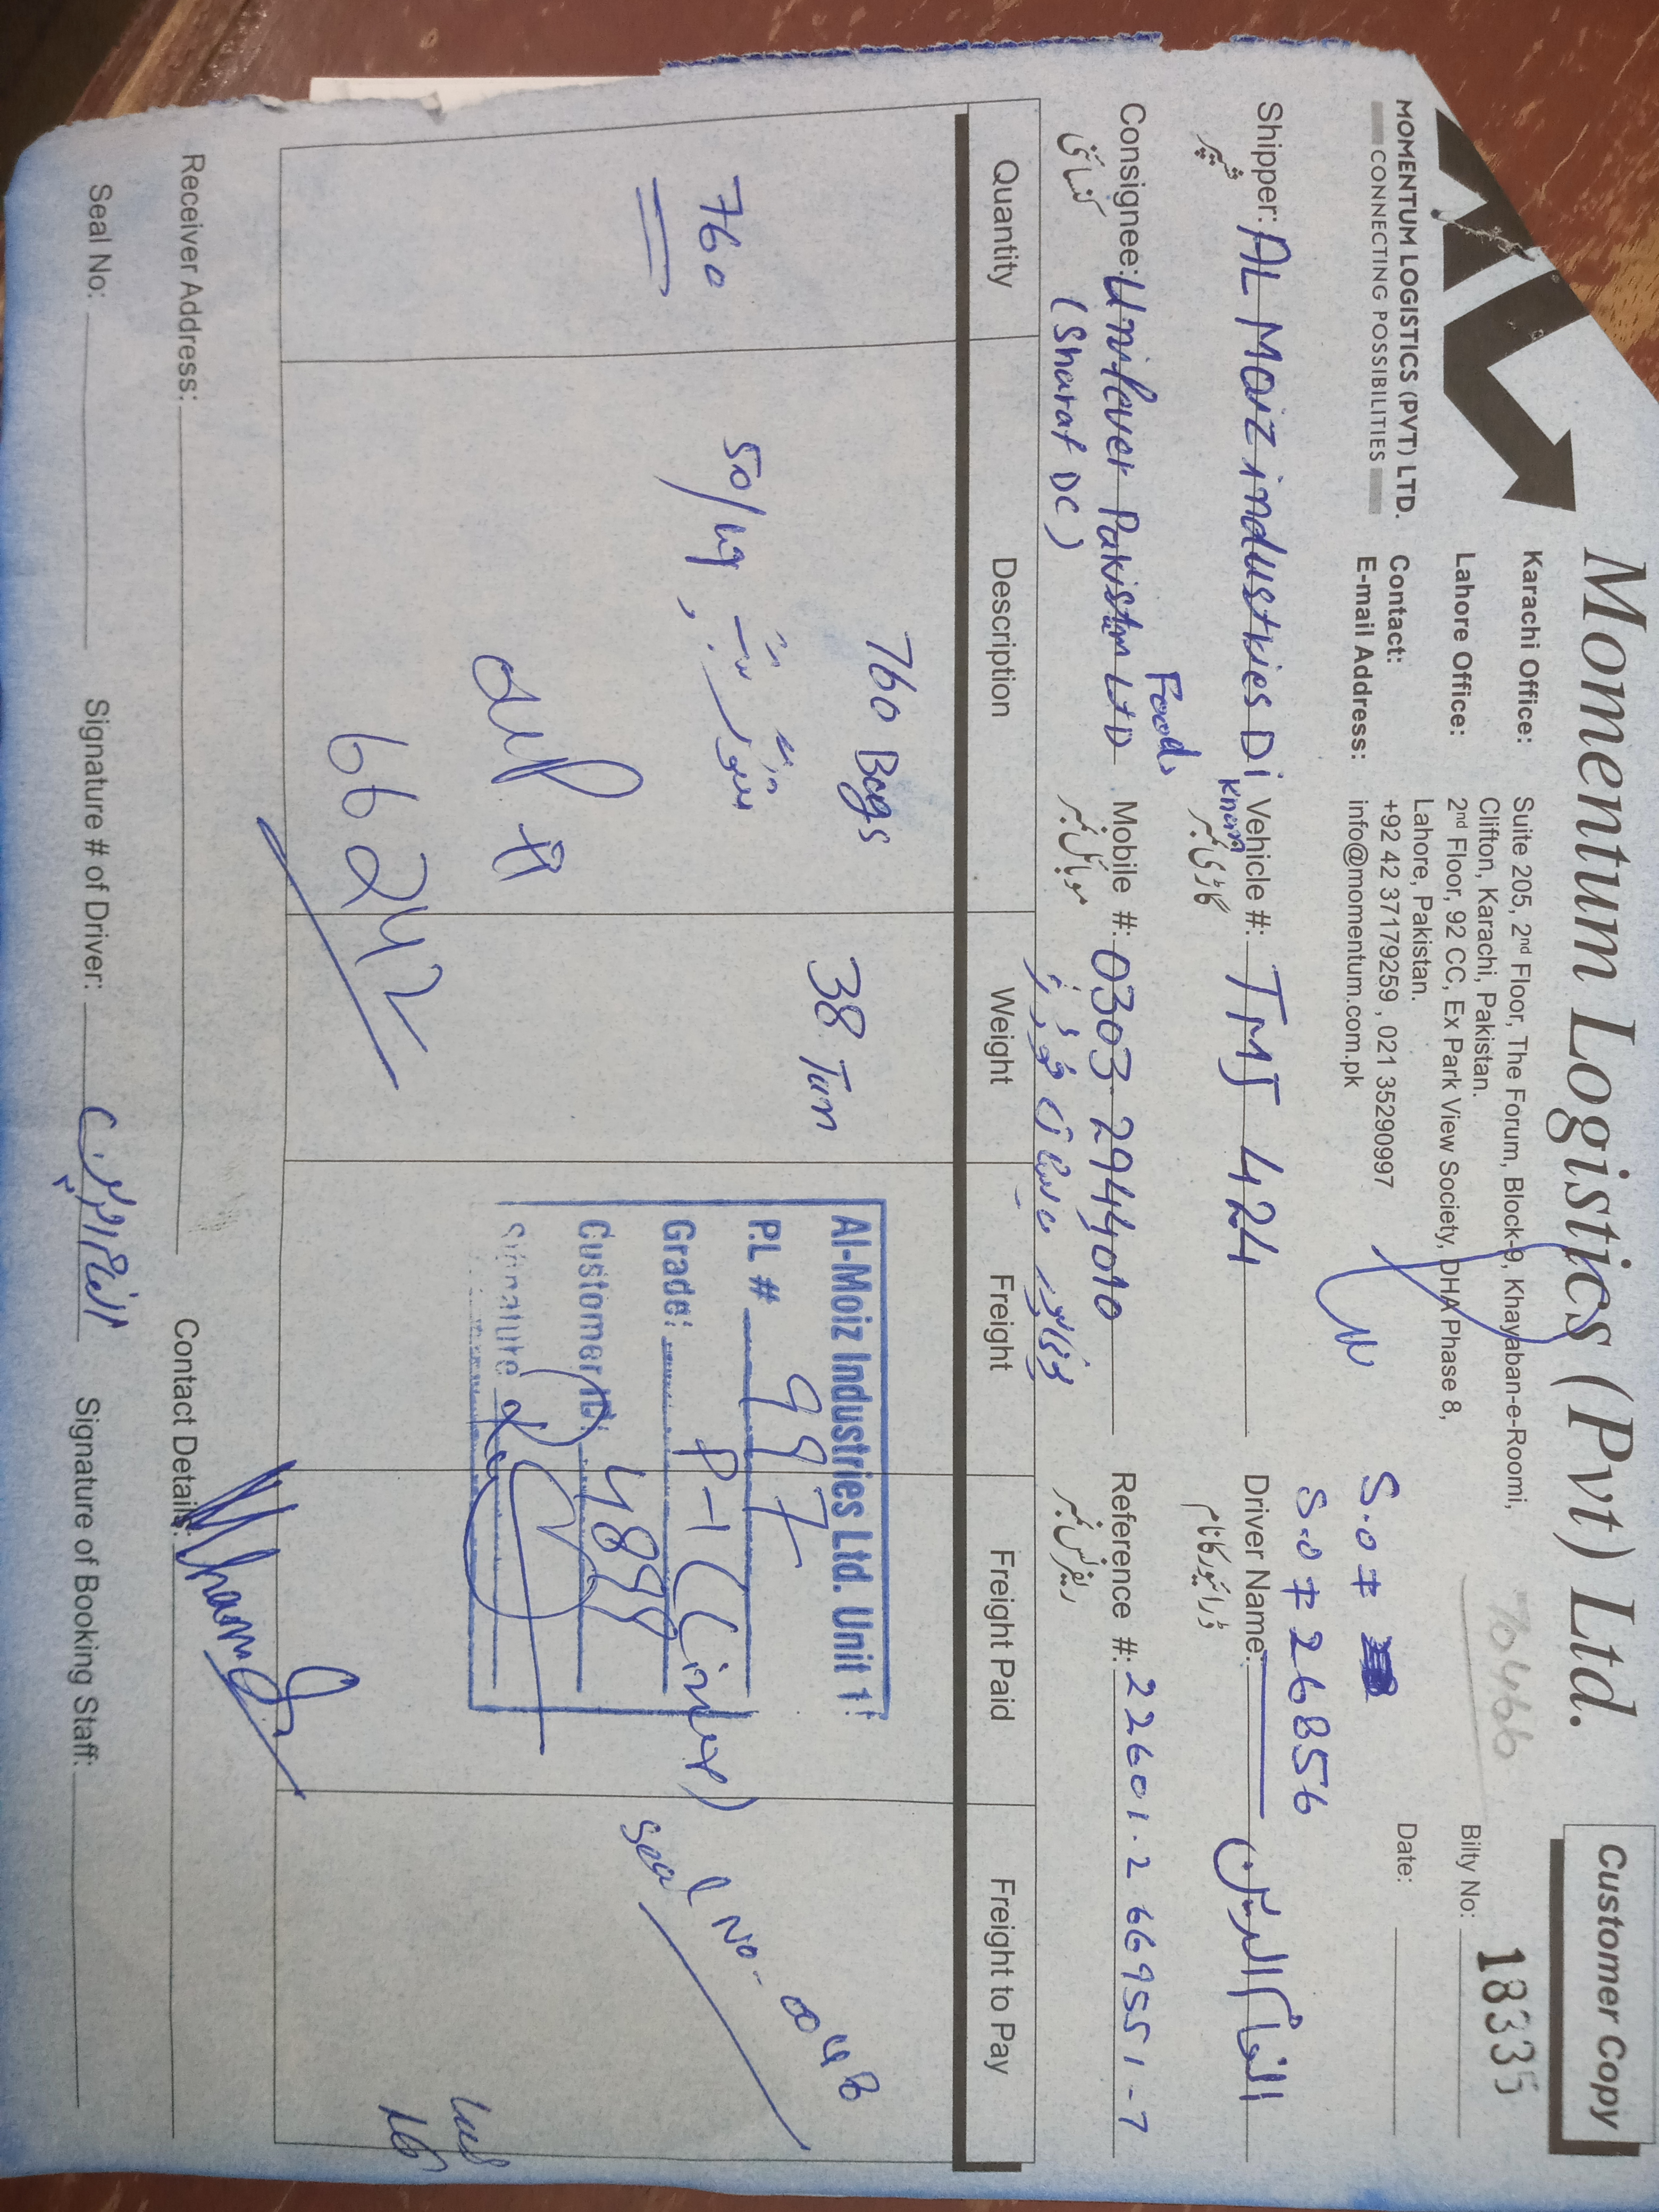 Momentum Logistics (Pvt) Ltd.
Customer Copy
MOMENTUM LOGISTICS (PVT) LTD.
CONNECTING POSSIBILITIES
Karachi Office: Suite 205, 2nd Floor, The Forum, Block-9, Khayaban-e-Roomi,
Clifton, Karachi, Pakistan.
Lahore Office: 2nd Floor, 92 CC, Ex Park View Society, DHA Phase 8,
Lahore, Pakistan.
Contact: +92 42 37179259 , 021 35290997
E-mail Address: info@momentum.com.pk
70466
Bilty No: 18335
Date:
S.O #
S.O # 26856
Shipper: AL Moiz industries Di Khan
شپر
Vehicle #: TMJ 424
گاڑی نمبر
Driver Name:
ڈرائیور کا نام
Consignee: Unilever Pakistan Foods LTD
(Sharaf DC)
کنسائنی
Mobile #: 0303 2944010
موبائل نمبر
Reference #: 22601.2669551-7
ریفرنس نمبر
Quantity Description Weight Freight Freight Paid Freight to Pay
760
760 Bags
50/kg
66242
38 Tun
Al-Moiz Industries Ltd. Unit 1
P.L # 997
Grade: P-1
Customer
Signature
Seal No-
Receiver Address:
Contact Details:
Seal No:
Signature # of Driver:
Signature of Booking Staff: